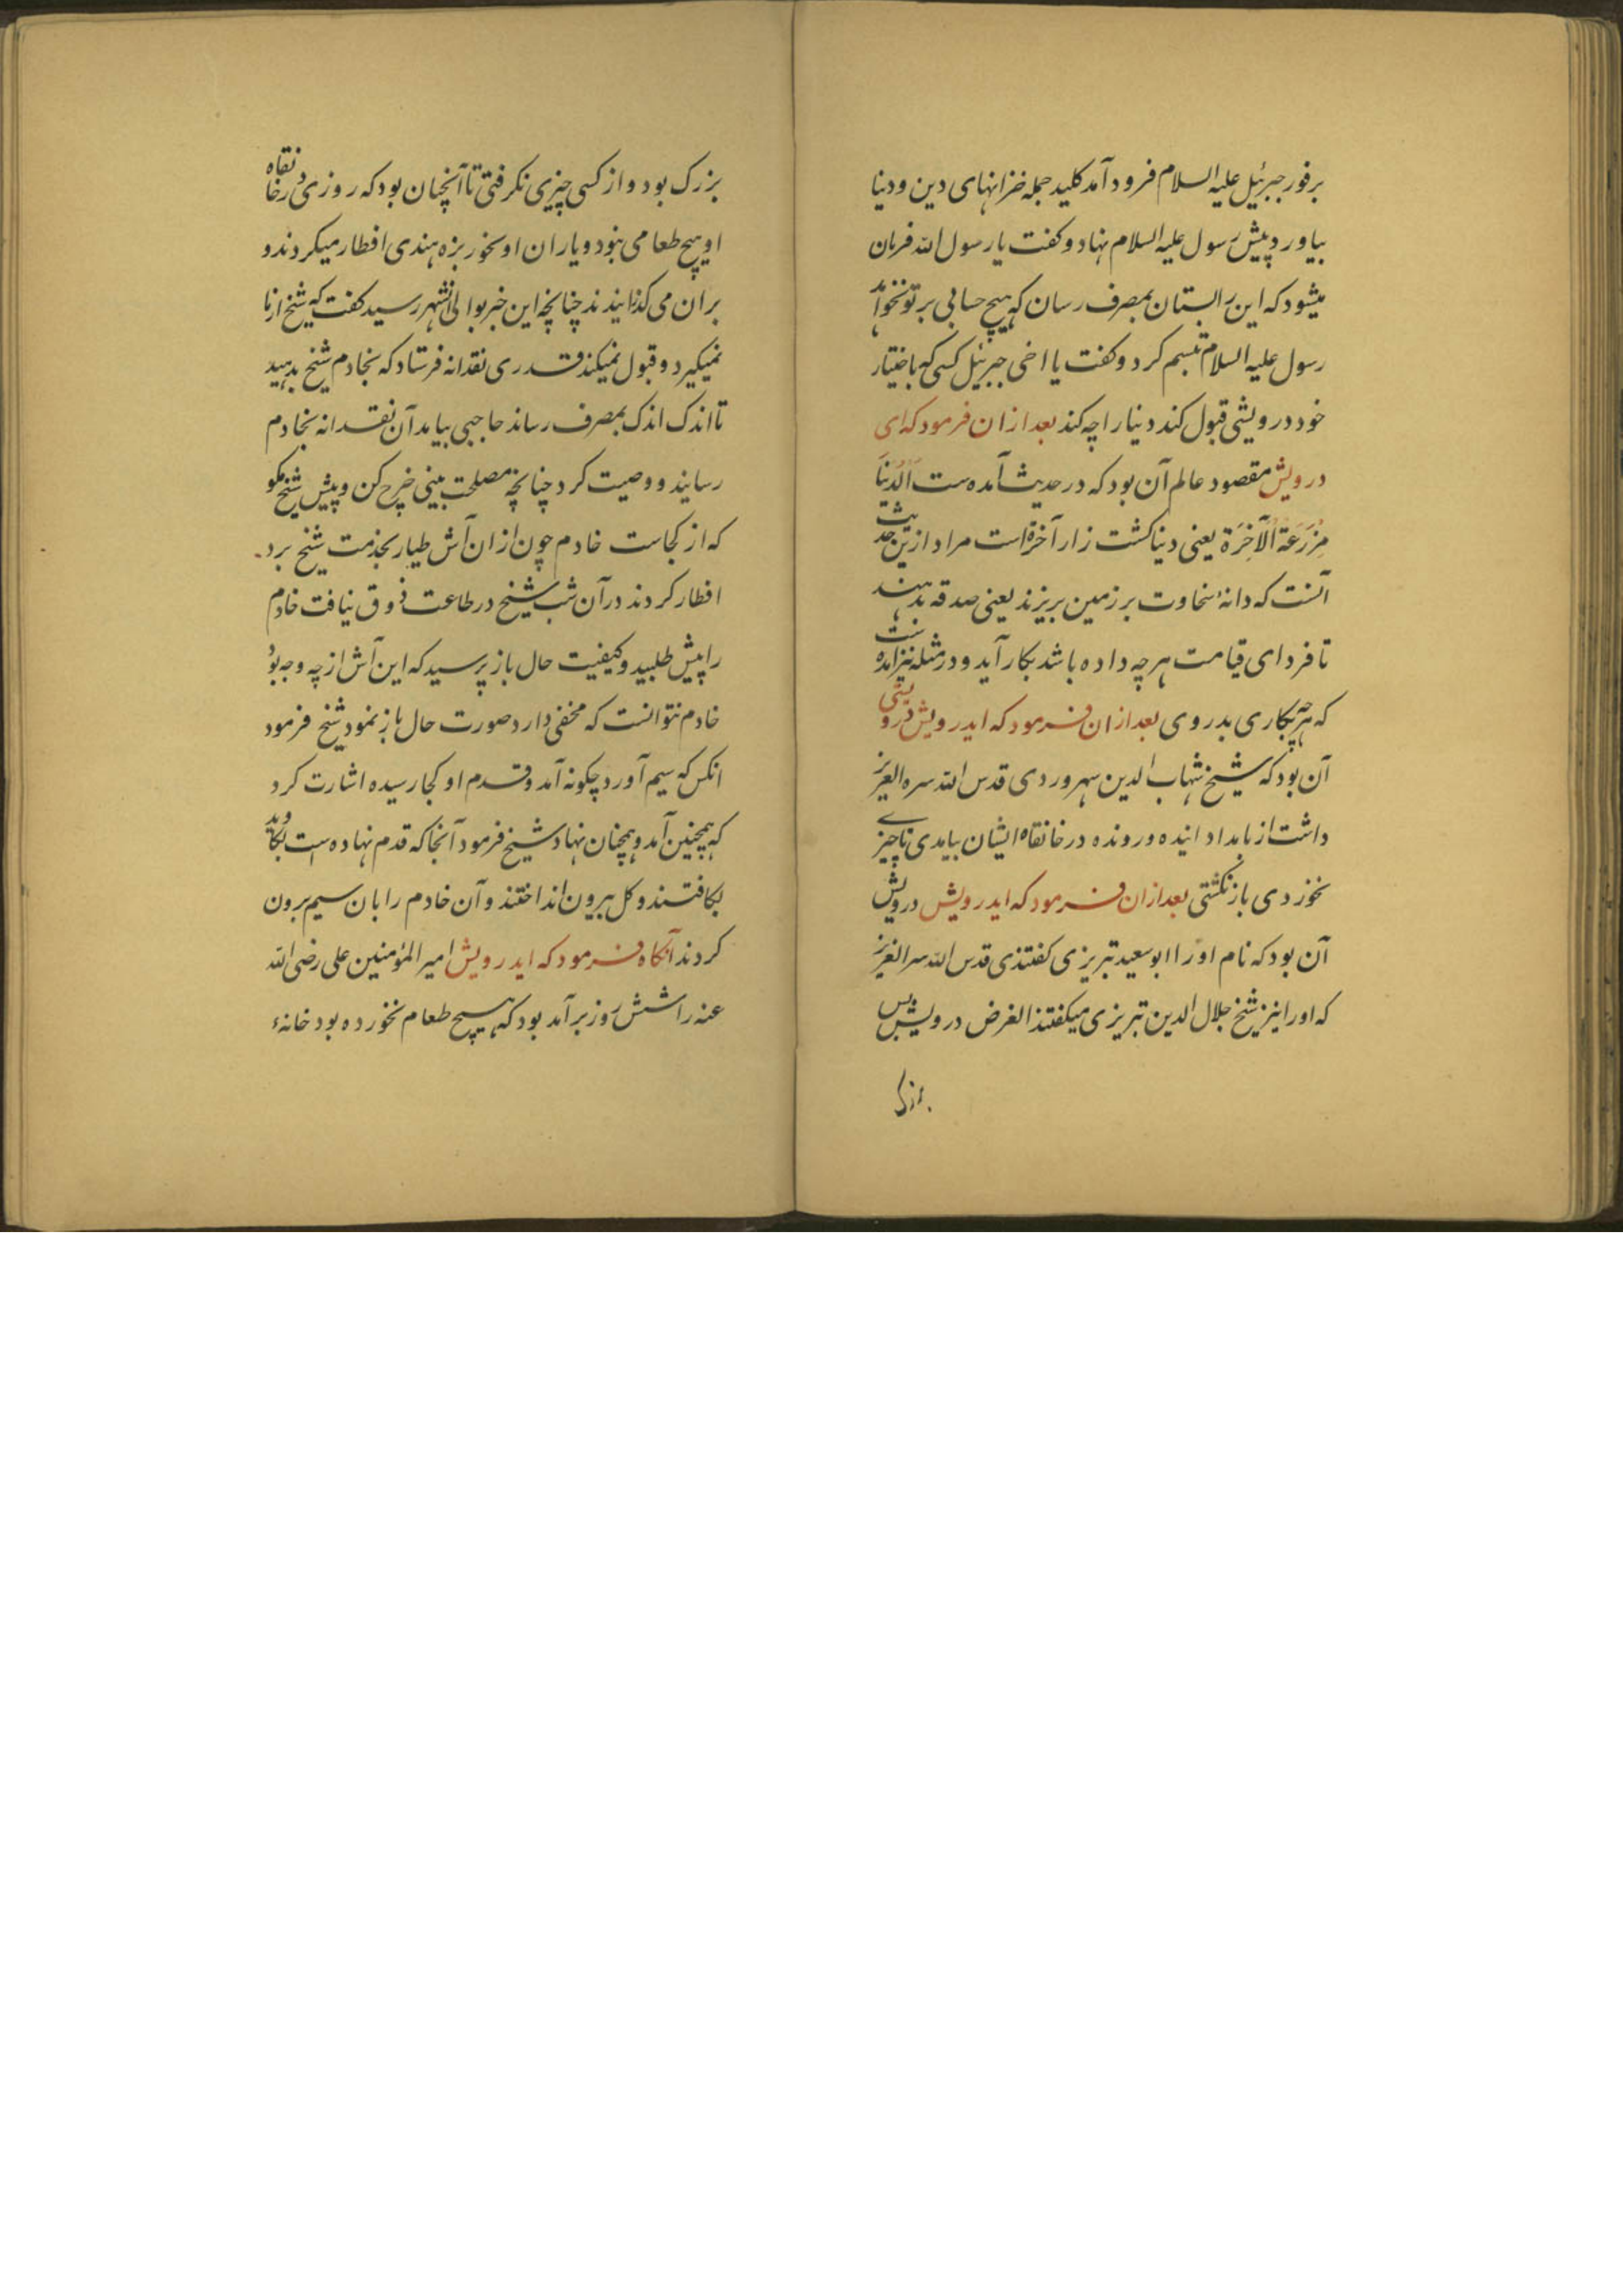 برفور جبرئیل علیه السلام فرود آمد کلید جمله خزانهای دین و دنیا
بیاورد پیش رسول علیه السلام نهاد و کفت یا رسول الله فرمان
میشود که این را بستان بمصرف رسان که هیچ حسابی بر تو نخواهد
رسول علیه السلام تبسم کرد و کفت یا اخی جبرئیل کسی که باختیار
خود درویشی قبول کند دنیا را چه کند بعد ازان فرمود که ای
درویش مقصود عالم آن بود که در حدیث آمده ست اَلدُنیَا
مَزرَعَة اَلآخِرَة یعنی دنیا کشت زار آخرة است مراد ازین حدیث
آنست که دانهٔ سخاوت بر زمین بریزند یعنی صدقه بدهند
تا فردای قیامت هر چه داده باشد بکار آید و در مثله نیز آمده ست
که هرچه بکاری بدروی بعد ازان فرمود که ایدرویش درویشی
آن بود که شیخ شهاب الدین سهروردی قدس الله سره العزیز
داشت از بامداد آینده و رونده در خانقاه ایشان بیامدی تا چیزے
نخوردی بازنگشتی بعد ازان فرمود که ایدرویش درویش
آن بود که نام اورا ابوسعید تبریزی کفتندی قدس الله سره العزیز
که اورا نیز شیخ جلال الدین تبریزی میکفتند الغرض درویش بس
بزرک
بزرک بود و از کسی چیزی نکرفتی تا آنچنان بود که روزی در خانقاه
او هیچ طعامی نبود و یاران او بخوربزه هندی افطار میکردند و
بران می کذانیدند چنانچه این خبر بوالی آنشهر رسید کفت که شیخ از ما
نمیکیرد و قبول نمیکند قدری نقدانه فرستاد که بخادم شیخ بدهید
تا اندک اندک بمصرف رساند حاجبی بیامد آن نقدانه بخادم
رسانید و وصیت کرد چنانچه مصلحت بینی خرج کن و پیش شیخ مکو
که از کجاست خادم چون ازان آش طیار بخدمت شیخ برد
افطار کردند در آن شب شیخ در طاعت ذوق نیافت خادم
را پیش طلبید و کیفیت حال باز پرسید که این آش از چه وجه بود
خادم نتوانست که مخفی دارد صورت حال باز نمود شیخ فرمود
انکس که سیم آورد چکونه آمد و قدم او کجا رسیده اشارت کرد
که همچنین آمد و همچنان نهاد شیخ فرمود آنجا که قدم نهاده ست بکاوید
بکافتند و کل بیرون انداختند و آن خادم را بان سیم برون
کردند آنکاه فرمود که ایدرویش امیر المؤمنین علی رضی الله
عنه را شش روز برآمد بود که هیچ طعام نخورده بود خانهٔ